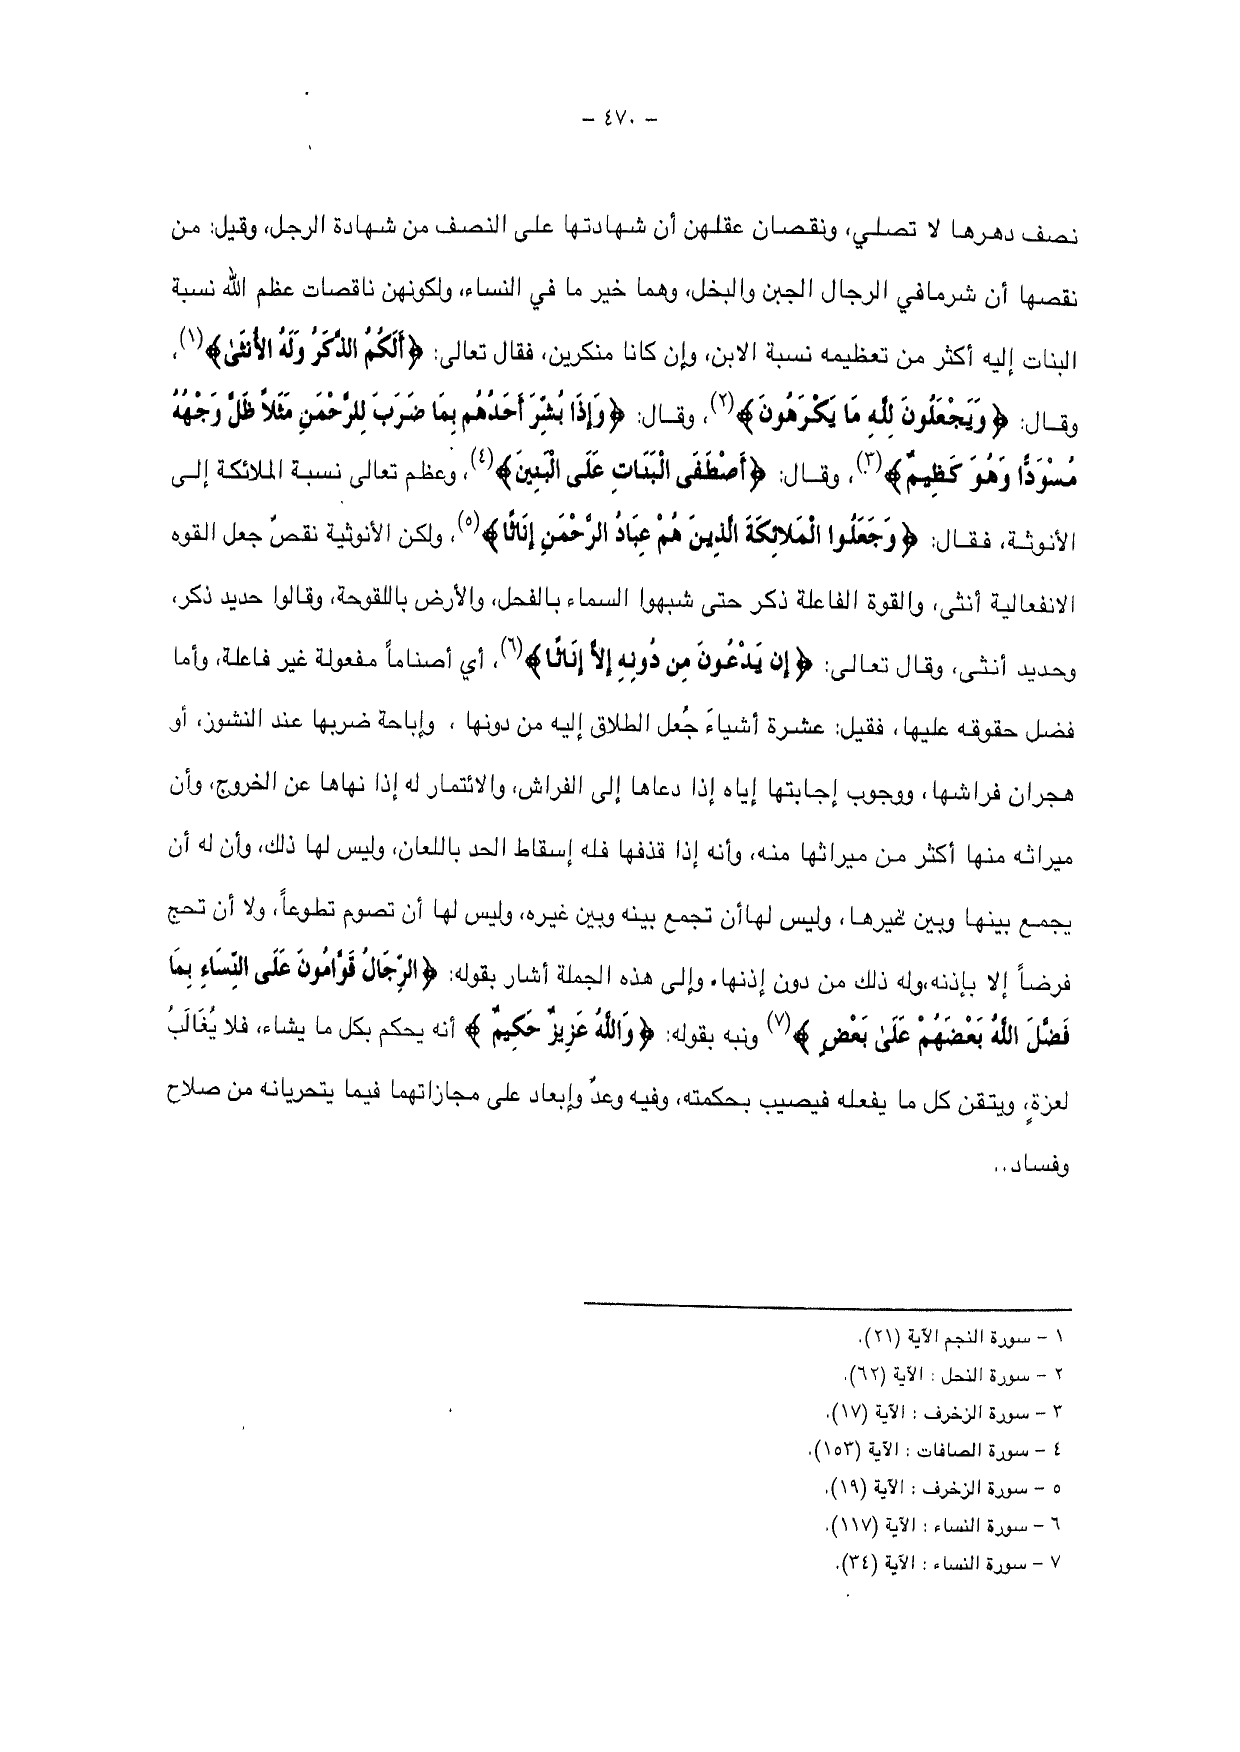 – ٤٧٠ –
نصف دهرها لا تصلي، ونقصان عقلهن أن شهادتها على النصف من شهادة الرجل، وقيل: من
نقصها أن شرمافي الرجال الجبن والبخل، وهما خير ما في النساء، ولكونهن ناقصات عظم الله نسبة
البنات إليه أكثر من تعظيمه نسبة الابن، وإن كانا منكرين، فقال تعالى: ﴿أَلَكُمُ الذَّكَرُ وَلَهُ الأُنثَىٰ﴾(١)،
وقال: ﴿وَيَجْعَلُونَ لِلّهِ مَا يَكْرَهُونَ﴾(٢)، وقال: ﴿وَإِذَا بُشِّرَ أَحَدُهُم بِمَا ضَرَبَ لِلرَّحْمَنِ مَثَلاً ظَلَّ وَجْهُهُ
مُسْوَدًّا وَهُوَ كَظِيمٌ﴾(٣)، وقال: ﴿أَصْطَفَى الْبَنَاتِ عَلَى الْبَنِينَ﴾(٤)، وعظم تعالى نسبة الملائكة إلى
الأنوثة، فقال: ﴿وَجَعَلُوا الْمَلائِكَةَ الَّذِينَ هُمْ عِبَادُ الرَّحْمَنِ إِنَاثًا﴾(٥)، ولكن الأنوثية نقصٌ جعل القوه
الانفعالية أنثى، والقوة الفاعلة ذكر حتى شبهوا السماء بالفحل، والأرض باللقوحة، وقالوا حديد ذكر،
وحديد أنثى، وقال تعالى: ﴿إِن يَدْعُونَ مِن دُونِهِ إِلاَّ إِنَاثًا﴾(٦)، أي أصناماً مفعولة غير فاعلة، وأما
فضل حقوقه عليها، فقيل: عشرة أشياءَ جُعل الطلاق إليه من دونها ، وإباحة ضربها عند النشون، أو
هجران فراشها، ووجوب إجابتها إياه إذا دعاها إلى الفراش، والائتمار له إذا نهاها عن الخروج، وأن
ميراثه منها أكثر من ميراثها منه، وأنه إذا قذفها فله إسقاط الحد باللعان، وليس لها ذلك، وأن له أن
يجمع بينها وبين غيرها، وليس لهاأن تجمع بينه وبين غيره، وليس لها أن تصوم تطوعاً، ولا أن تحج
فرضاً إلا بإذنه،وله ذلك من دون إذنها. وإلى هذه الجملة أشار بقوله: ﴿الرِّجَالُ قَوَّامُونَ عَلَى النِّسَاءِ بِمَا
فَضَّلَ اللَّهُ بَعْضَهُمْ عَلَىٰ بَعْضٍ ﴾(٧) ونبه بقوله: ﴿وَاللَّهُ عَزِيزٌ حَكِيمٌ ﴾ أنه يحكم بكل ما يشاء، فلا يُغَالَبُ
لعزةٍ، ويتقن كل ما يفعله فيصيب بحكمته، وفيه وعدٌ وإبعاد على مجازاتهما فيما يتحريانه من صلاح
وفساد..
١ – سورة النجم الآية (٢١).
٢ – سورة النحل : الآية (٦٢).
٣ – سورة الزخرف : الآية (١٧).
٤ – سورة الصافات : الآية (١٥٣).
٥ – سورة الزخرف : الآية (١٩).
٦ – سورة النساء : الآية (١١٧).
٧ – سورة النساء : الآية (٣٤).